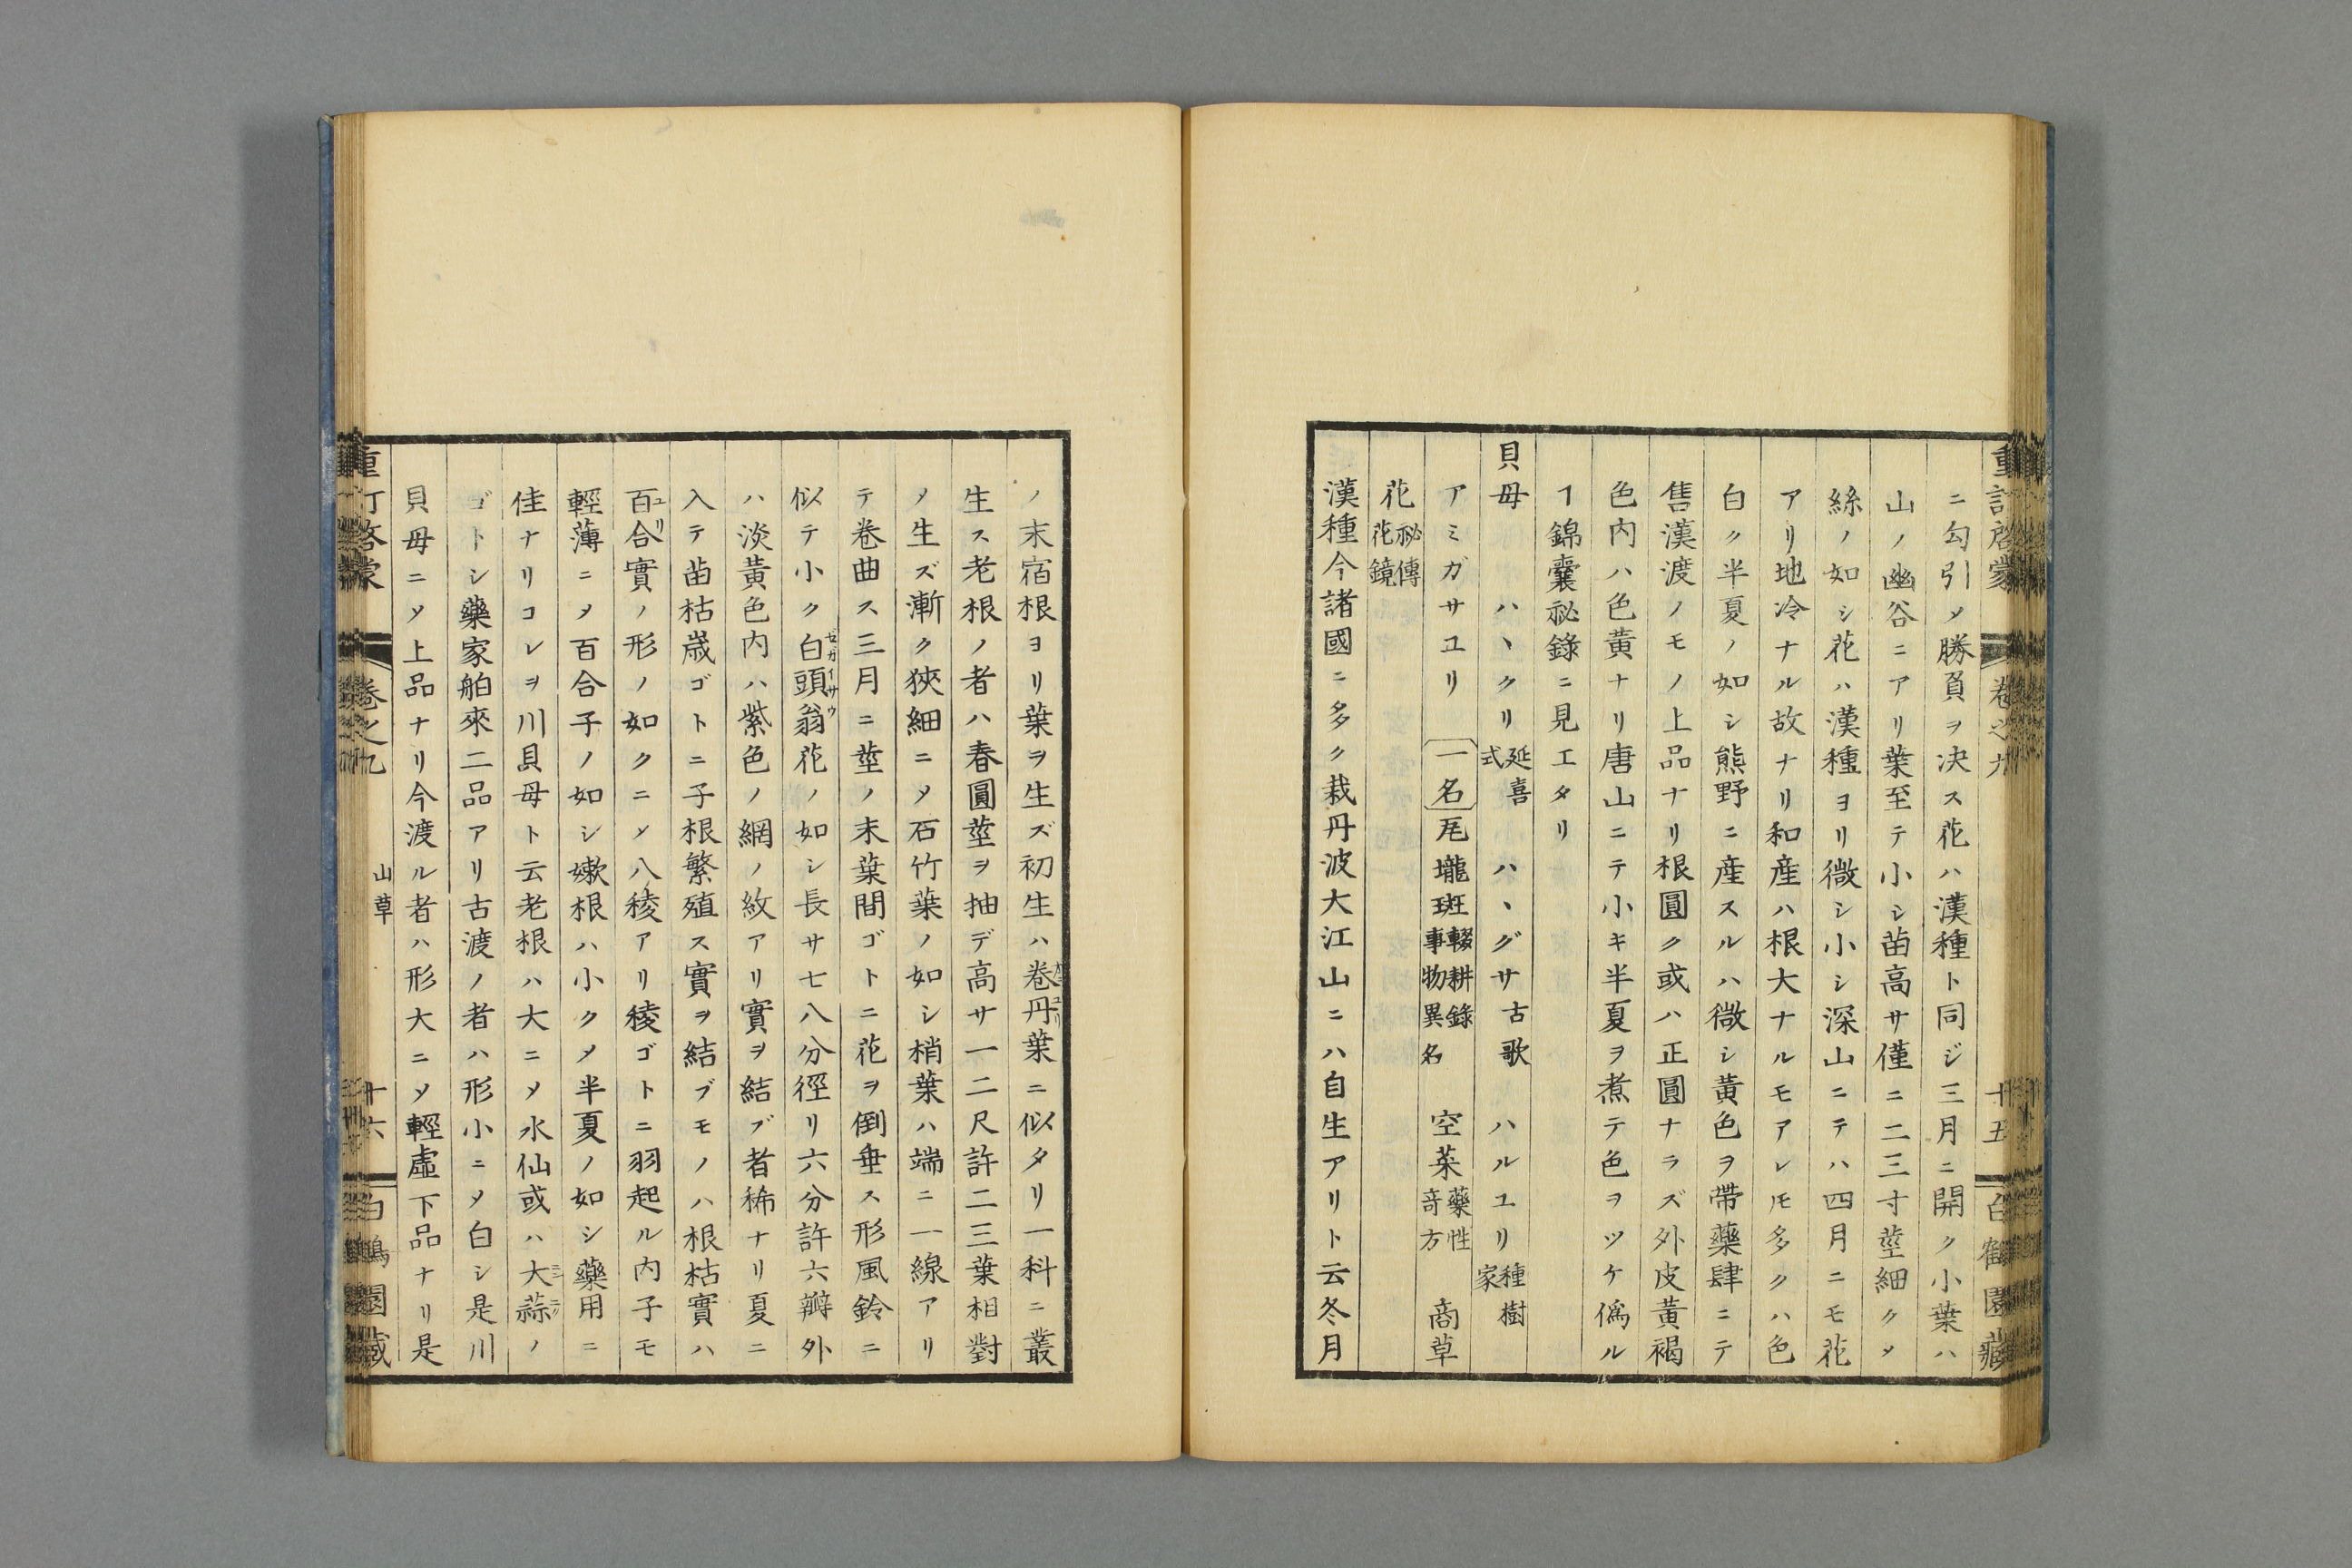 重訂啓蒙 卷之九 十五 白鶴園藏
ニ勾引〆勝負ヲ决ス花ハ漢種ト同ジ三月ニ開ク小葉ハ
山ノ幽谷ニアリ葉至テ小シ苗高サ僅ニ二三寸莖細ク〆
絲ノ如シ花ハ漢種ヨリ微シ小シ深山ニテハ四月ニモ花
アリ地冷ナル故ナリ和産ハ根大ナルモアレ𪜈多クハ色
白ク半夏ノ如シ熊野ニ産スルハ微シ黄色ヲ帶藥肆ニテ
售漢渡ノモノ上品ナリ根圓ク或ハ正圓ナラズ外皮黄褐
色内ハ色黄ナリ唐山ニテ小キ半夏ヲ煮テ色ヲツケ僞ル
ヿ錦囊祕錄ニ見エタリ
貝母 ハヽクリ 延喜式 ハヽグサ 古歌 ハルユリ 種樹家
アミガサユリ 一名 㡯壠斑 輟耕錄事物異名 空菜 藥性竒方 商草
花 祕傳花鏡
漢種今諸國ニ多ク栽丹波大江山ニハ自生アリト云冬月
ノ末宿根ヨリ葉ヲ生ズ初生ハ卷丹葉ニ似タリ一科ニ叢
生ス老根ノ者ハ春圓莖ヲ抽デ高サ一二尺許二三葉相對
〆生ズ漸ク狹細ニ〆石竹葉ノ如シ梢葉ハ端ニ一線アリ
テ卷曲ス三月ニ莖ノ末葉間ゴトニ花ヲ倒垂ス形風鈴ニ
似テ小ク白頭翁花ノ如シ長サ七八分徑リ六分許六瓣外
ハ淡黄色内ハ紫色ノ網ノ紋アリ實ヲ結ブ者稀ナリ夏ニ
入テ苗枯歳ゴトニ子根繁殖ス實ヲ結ブモノハ根枯實ハ
百合實ノ形ノ如クニ〆八稜アリ稜ゴトニ羽起ル内子モ
輕薄ニ〆百合子ノ如シ嫰根ハ小ク〆半夏ノ如シ藥用ニ
佳ナリコレヲ川貝母ト云老根ハ大ニ〆水仙或ハ大蒜ノ
ゴトシ藥家舶來二品アリ古渡ノ者ハ形小ニ〆白シ是川
貝母ニ〆上品ナリ今渡ル者ハ形大ニ〆輕虛下品ナリ是
重訂啓蒙 卷之九 山草 十六 白鶴園藏